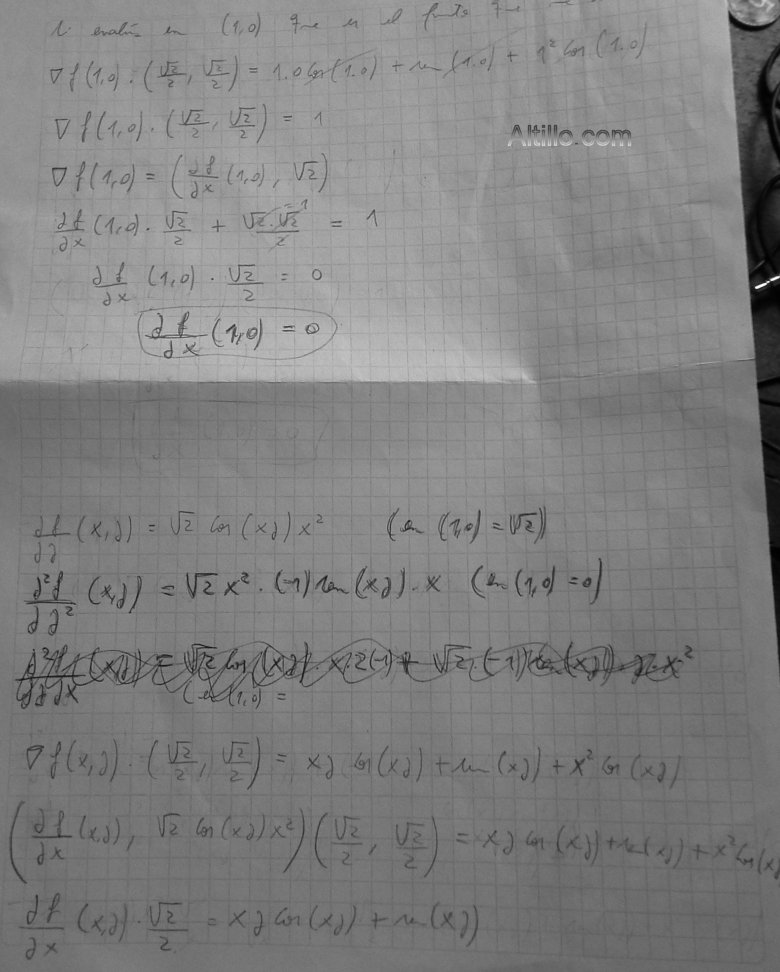 evalúa en (1,0) que es el punto que
∇f(1,0) · (√2/2, √2/2) = 1.0 cos(1.0) + sen(1.0) + 1² cos(1.0)
∇f(1,0) · (√2/2, √2/2) = 1
Altillo.com
∇f(1,0) = (∂f/∂x (1,0), √2)
∂f/∂x (1,0) · √2/2 + √2·√2/2 = 1
=1
∂f/∂x (1,0) · √2/2 = 0
∂f/∂x (1,0) = 0
∂f/∂y (x,y) = √2 cos(xy) x² (en (1,0) = √2)
∂²f/∂y² (x,y) = √2 x² · (-1) sen(xy) · x (en (1,0) = 0)
∇f(x,y) · (√2/2, √2/2) = xy cos(xy) + sen(xy) + x² cos(xy)
(∂f/∂x (x,y), √2 cos(xy) x²) (√2/2, √2/2) = xy cos(xy) + sen(xy) + x² cos(xy)
∂f/∂x (x,y) · √2/2 = xy cos(xy) + sen(xy)